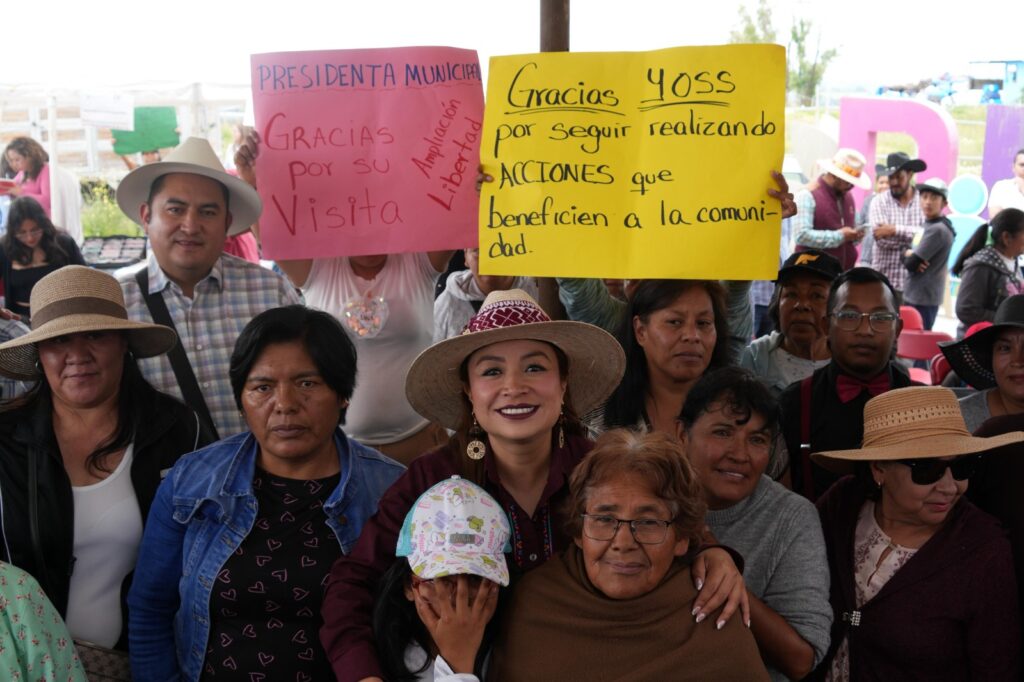 PRESIDENTA MUNICIPAL
GRACIAS
por su
Visita
Ampliación
Libertad
Gracias YOSS
por seguir realizando
ACCIONES que
beneficien a la comuni-
dad.